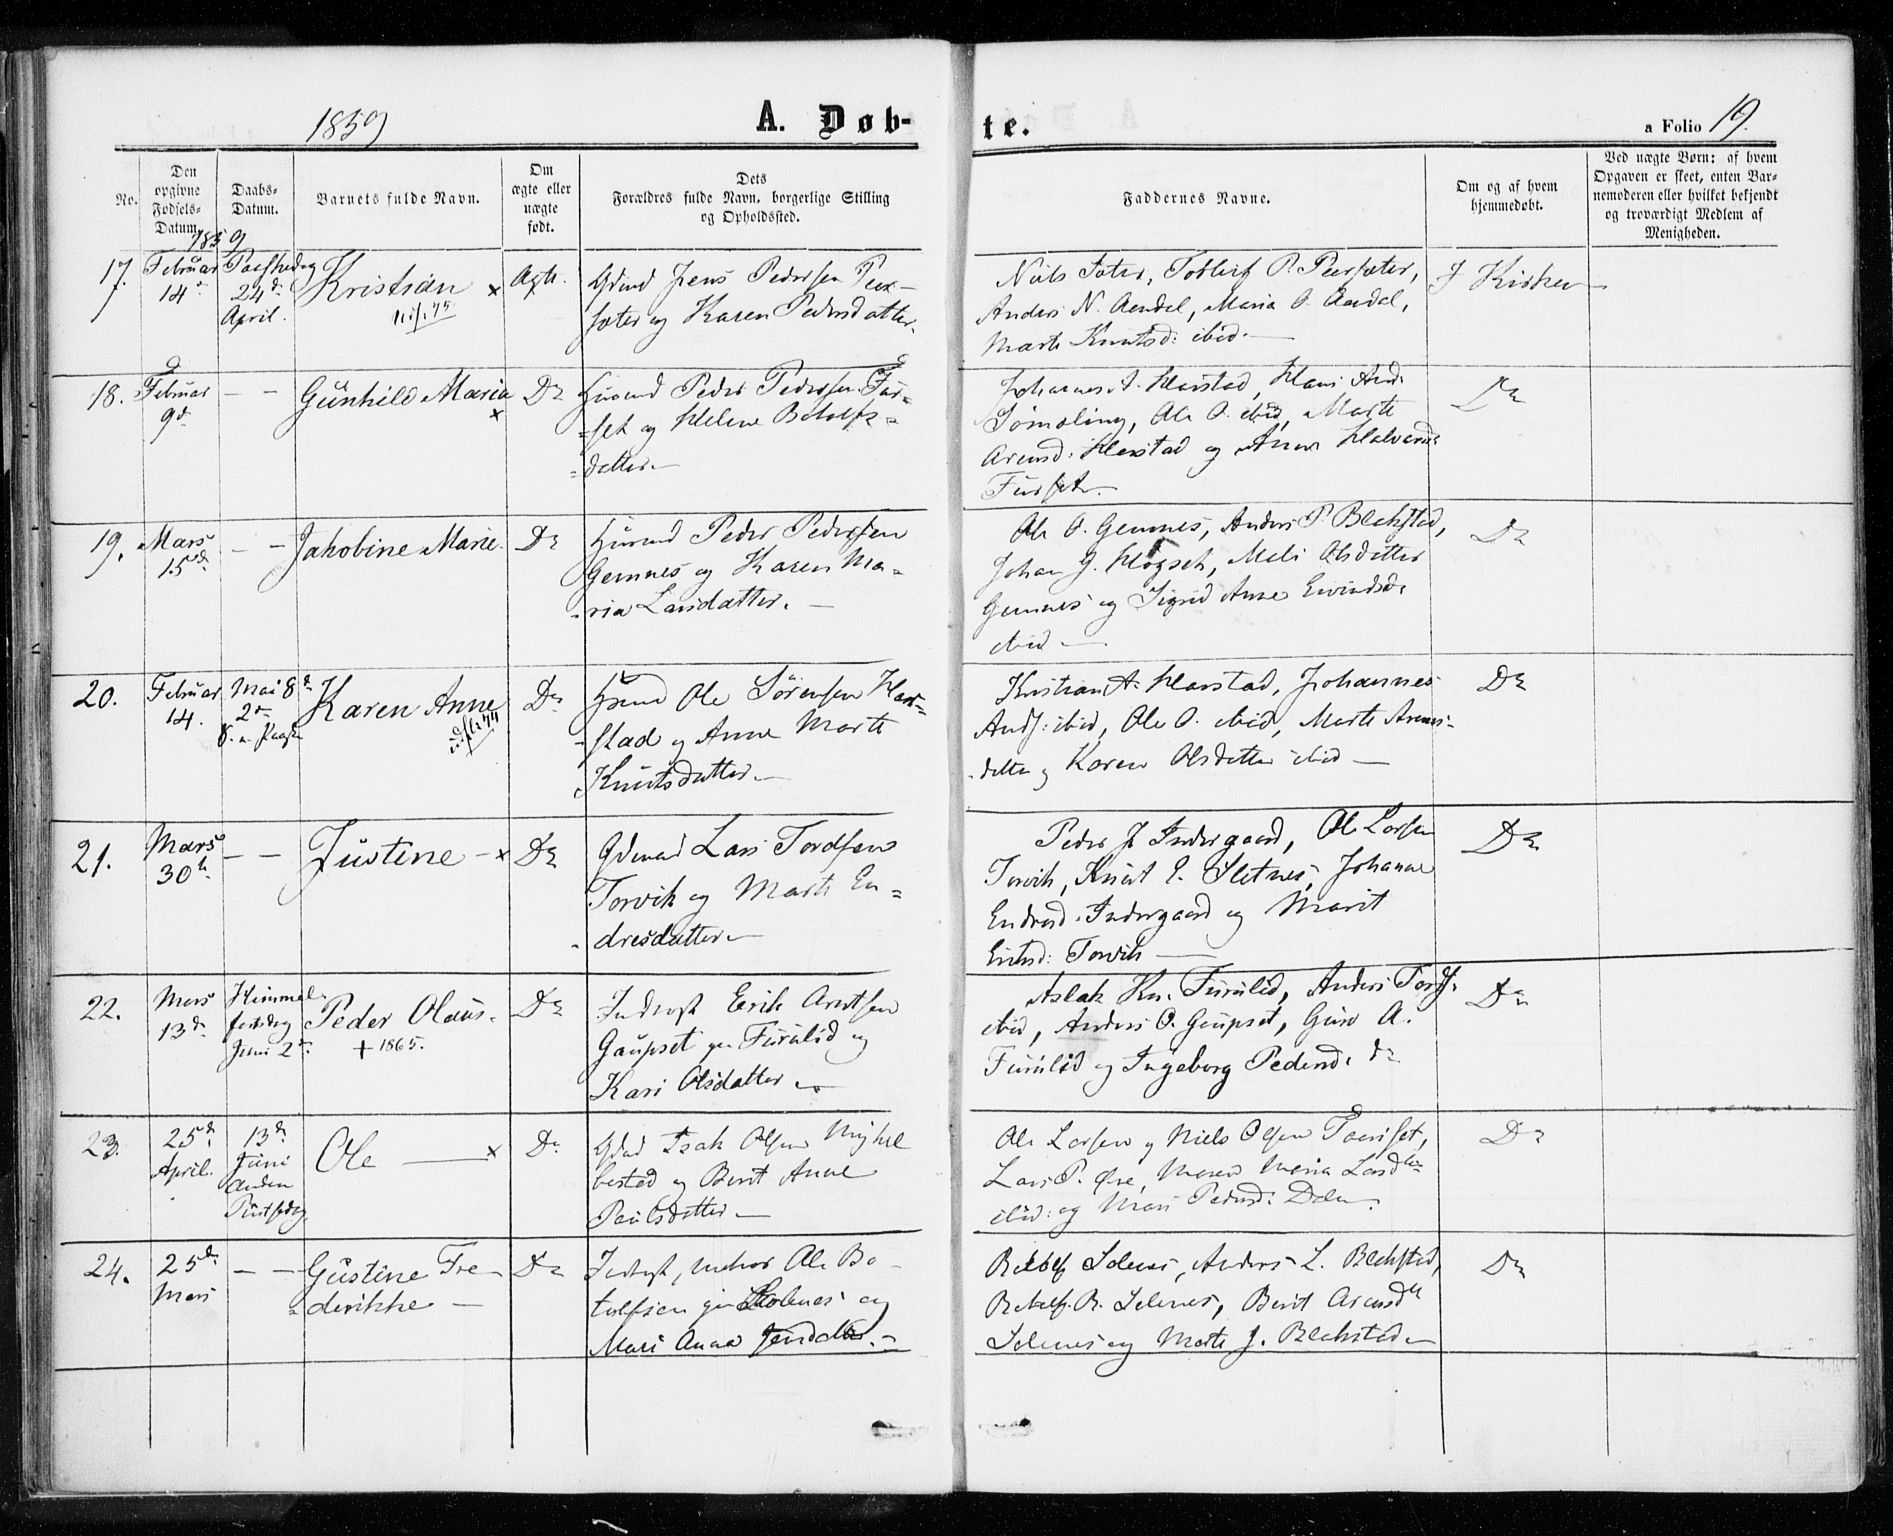 1859
A. Døb-
te.
a Folio 19.
No.
Den opgivne Fødsels-Datum.
Daabs-Datum.
Barnets fulde Navn.
Om ægte eller uægte født.
Dets Forældres fulde Navn, borgerlige Stilling og Opholdssted.
Faddernes Navne.
Om og af hvem hjemmedøbt.
Ved uægte Børn: af hvem Opgaven er skeet, enten Barnemoderen eller hvilket bekjendt og troværdigt Medlem af Menigheden.
1859
17. Februar 14de
Paaskedag 24de April.
Kristian x
Ægte.
Gdmd Jens Pedersen Peer-
sæter og Karen Pedersdatter.
Niels Sæter, P. Peersæter,
Anders N. Aandal, Maria O. Aandal,
Marte Knutsd: ibid.
I Kirken
18. Februar 9de
— —
Gunhild Maria x
Do
Husmd Peder Pedersen Fur-
=set og Helene Botolfs=
=datter
Johannes A. Harstad, Hans And.
Ole O. ibid, Marte
Arensd: Harstad og Anne Halvorsd:
Furset.
Do
19. Mars 15de
— —
Jakobine Marie.
Do
Husmd Peder Pedersen
Gemnes og Karen Ma=
=ria Larsdatter.
Ole O. Gemnes, Anders P. Blekstad,
Johan J. Høgset, Meli Olsdatter
Gemnes og Sigrid Anne Eivindsd.
ibid
Do
20. Februar 14.
Mai 8de
2den S. e. Paaske
Karen Anne
Do
Husmd Ole Sörensen Har=
=stad og Anne Marte
Knutsdatter
Kristian A. Harstad, Johannes
Ands: ibid, Ole O. ibid, Marte Arens-
datter og Karen Olsdatter ibid
Do
21. Mars 30te
— —
Justine x
Do
Gdmand Lars Tordsen
Torvik og Marte En=
dresdatter
Peder J. Indergaard, Ole Larsen
Torvik, Knut E. Sletnes, Johanne
Endresd. Indergaard og Marit
Torvik
Do
22. Mars 13de
Himmel-
fartsdag
Juni 2den
Peder Olaus.
+ 1865.
Do
Inderst Erik Arntsen
Gaupset pr Furulid og
Kari Olsdatter
Aslak Kn. Furulid, Anders Tords.
ibid, Anders O. Gaupset, Guro A.
Furulid og Ingeborg Pedersd. do
Do
23. 25de April.
13de Juni
Anden
Pintsedag
Ole x
Do
Gdmd Isak Olsen Mykle
bostad og Berit Anne
Paulsdatter
Ole Larsen og Niels Olsen
Lars P. Øre, Maren Maria Larsdtr
ibid: og Mari Pedersd: Dalen.
Do
24. 25de Mars
— —
Gustine Fre-
=derikke
Do
Inderst, Ole Bo-
tolfsen pr Solenes og
Mari Anna Jensdatter.
Botolf Solenes, Anders L. Blekstad,
Botolf B. Solenes, Berit Arensdtr
Solenes og Marte J. Blekstad
Do